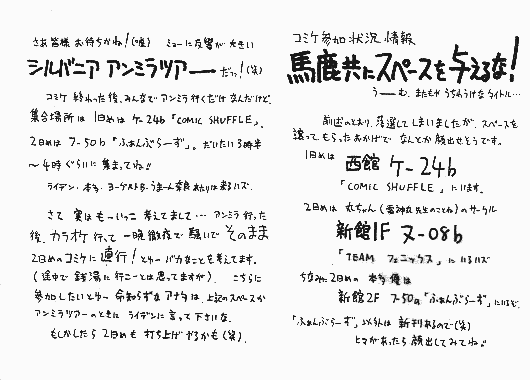 さあ皆様お待ちかね!(嘘) ミョーに反響が大きい
シルバニア アンミラツアーだっ!(笑)
コミケ終わった後、みんなでアンミラ行くだけなんだけど、
集合場所は 1日めは ケ-24b「COMIC SHUFFLE」、
2日めは フ-50b「ふぁんぶらーず」。だいたい3時半
〜4時ぐらいに集まってね!!
ライデン・本多・ヨーゲストか・うまーん奈良あたりは来るハズ。
さて 実はもーいっこ考えてまして… アンミラ行った
後、カラオケ行って一晩徹夜で騒いでそのまま
2日めのコミケに連行!とゆーバカなことも考えてます。
(途中で銭湯に行こーとは思ってますが)。こちらに
参加したいとゆー命知らずなアナタは、上記のスペースか
アンミラツアーのときに ライデンに言って下さいな。
もしかしたら 2日めも 打ち上げやるかも(笑)。
コミケ参加状況情報
馬鹿共にスペースを与えるな!
うーむ、またもやうちわうけなタイトル…
前述のとおり、落選してしまいましたが、スペースを
譲ってもらったおかげで なんとか顔出せそうです。
1日めは
西館 ケ-24b
「COMIC SHUFFLE」にいます。
2日めは 丸ちゃん(雷神丸先生のことね)のサークル
新館1F ヌ-08b
「TEAM フェニックス」にいるハズ
ちなみに2日めの 本多優は
新館2F フ-50a「ふぁんぶらーず」にいるぞ
「ふぁんぶらーず」以外は 新刊あるので(笑)
ヒマがあったら 顔出してみてね!!